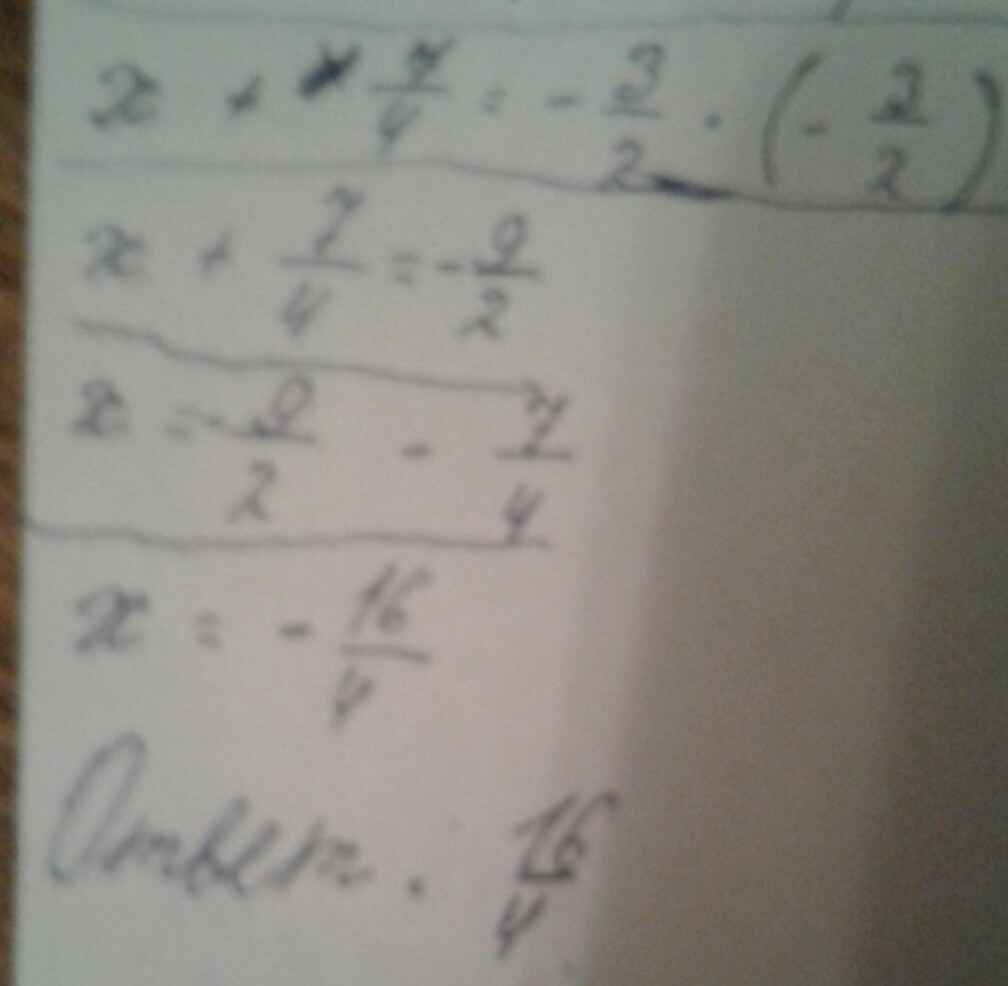 x + 7/4 = - 3/2 · (- 3/2)
x + 7/4 = - 9/2
x = - 9/2 - 7/4
x = - 16/4
Ответ. 16/4